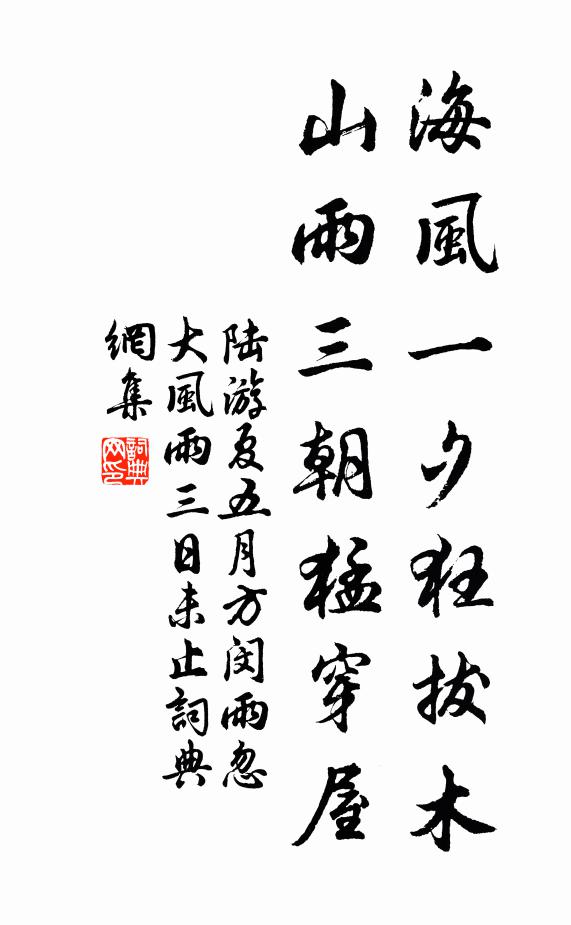 海風一夕狂拔木
山雨三朝猛穿屋
陆游夏五月方闵雨忽
大風雨三日未止詞典
網集
詞典
网印